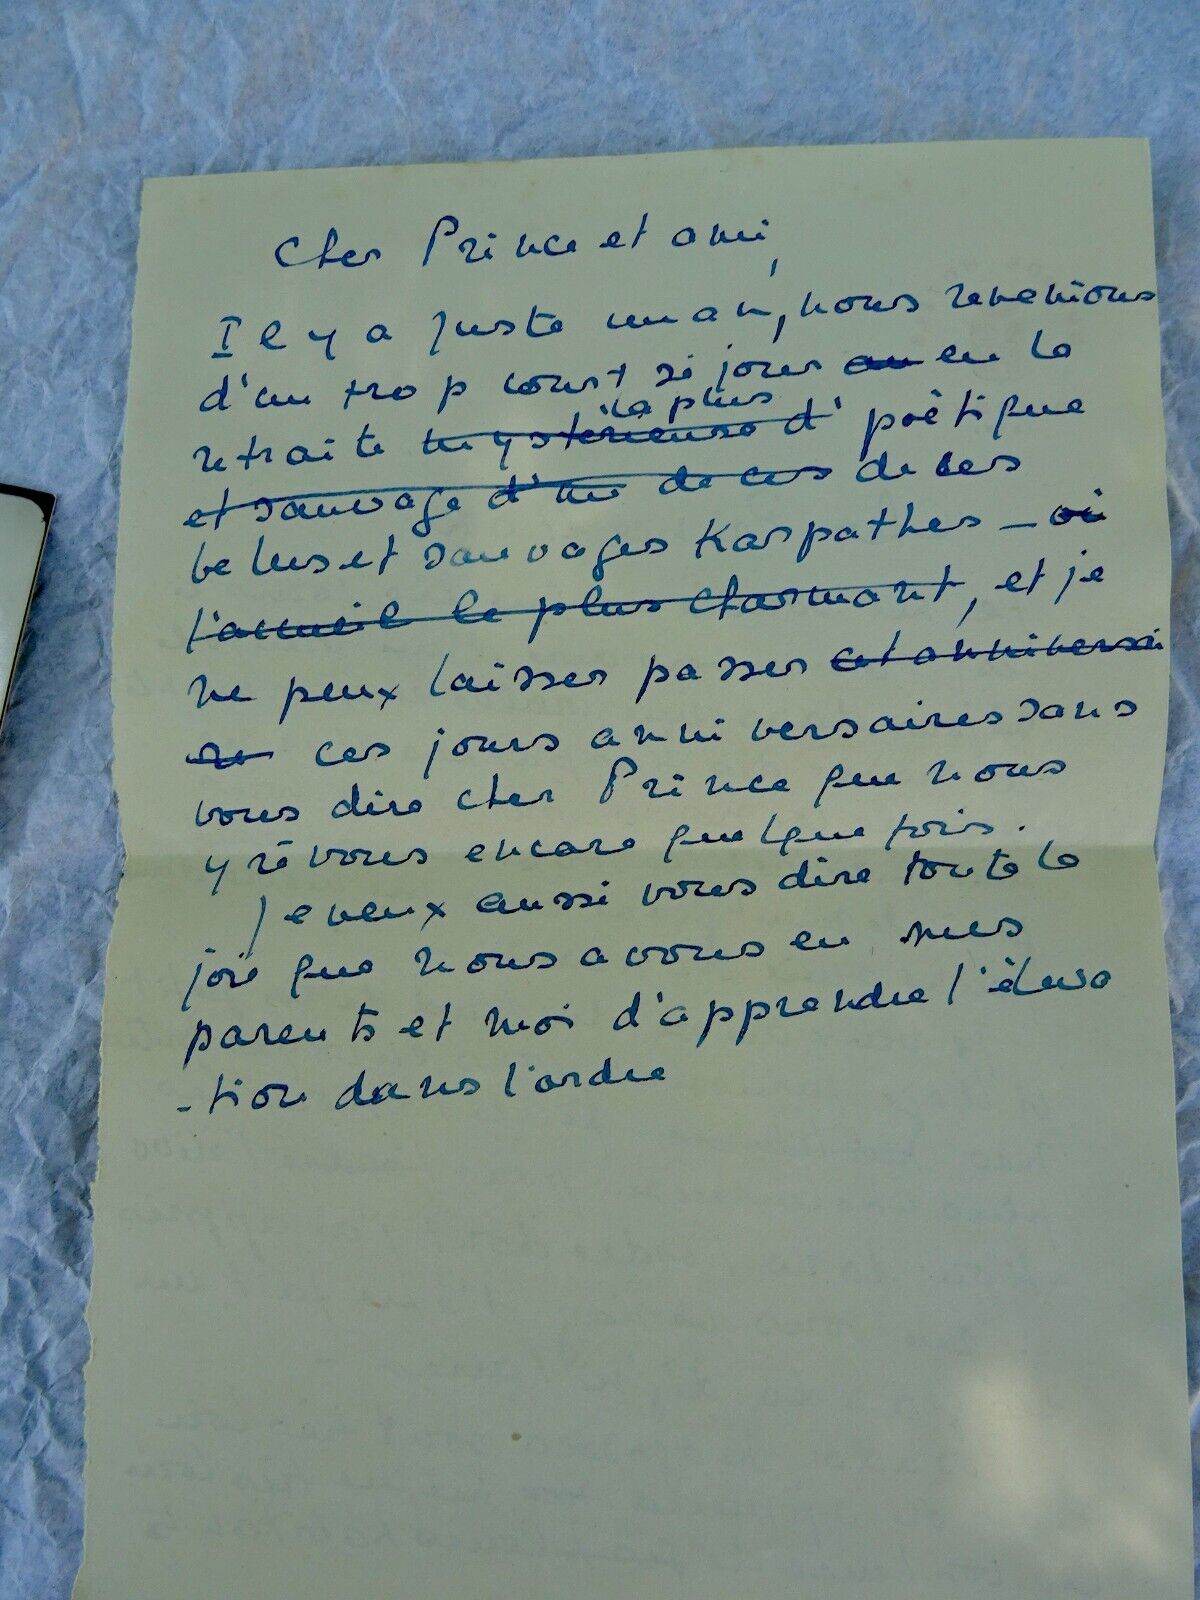 Cher Prince et ami,
Il y a juste un an, nous revenions
d'un trop court séjour au en la
la plus
retraite mystérieuse d' poétique
et sauvage d'un de ces de ces
belles et sauvages Karpathes - où
l'accueil le plus charmant, et je
ne peux laisser passer cet anniversai
re ces jours anniversaires sans
vous dire cher Prince que nous
y rêvons encore quelque fois.
Je veux aussi vous dire toute la
joie que nous avons eu mes
parents et moi d'apprendre l'éleva
-tion dans l'ordre